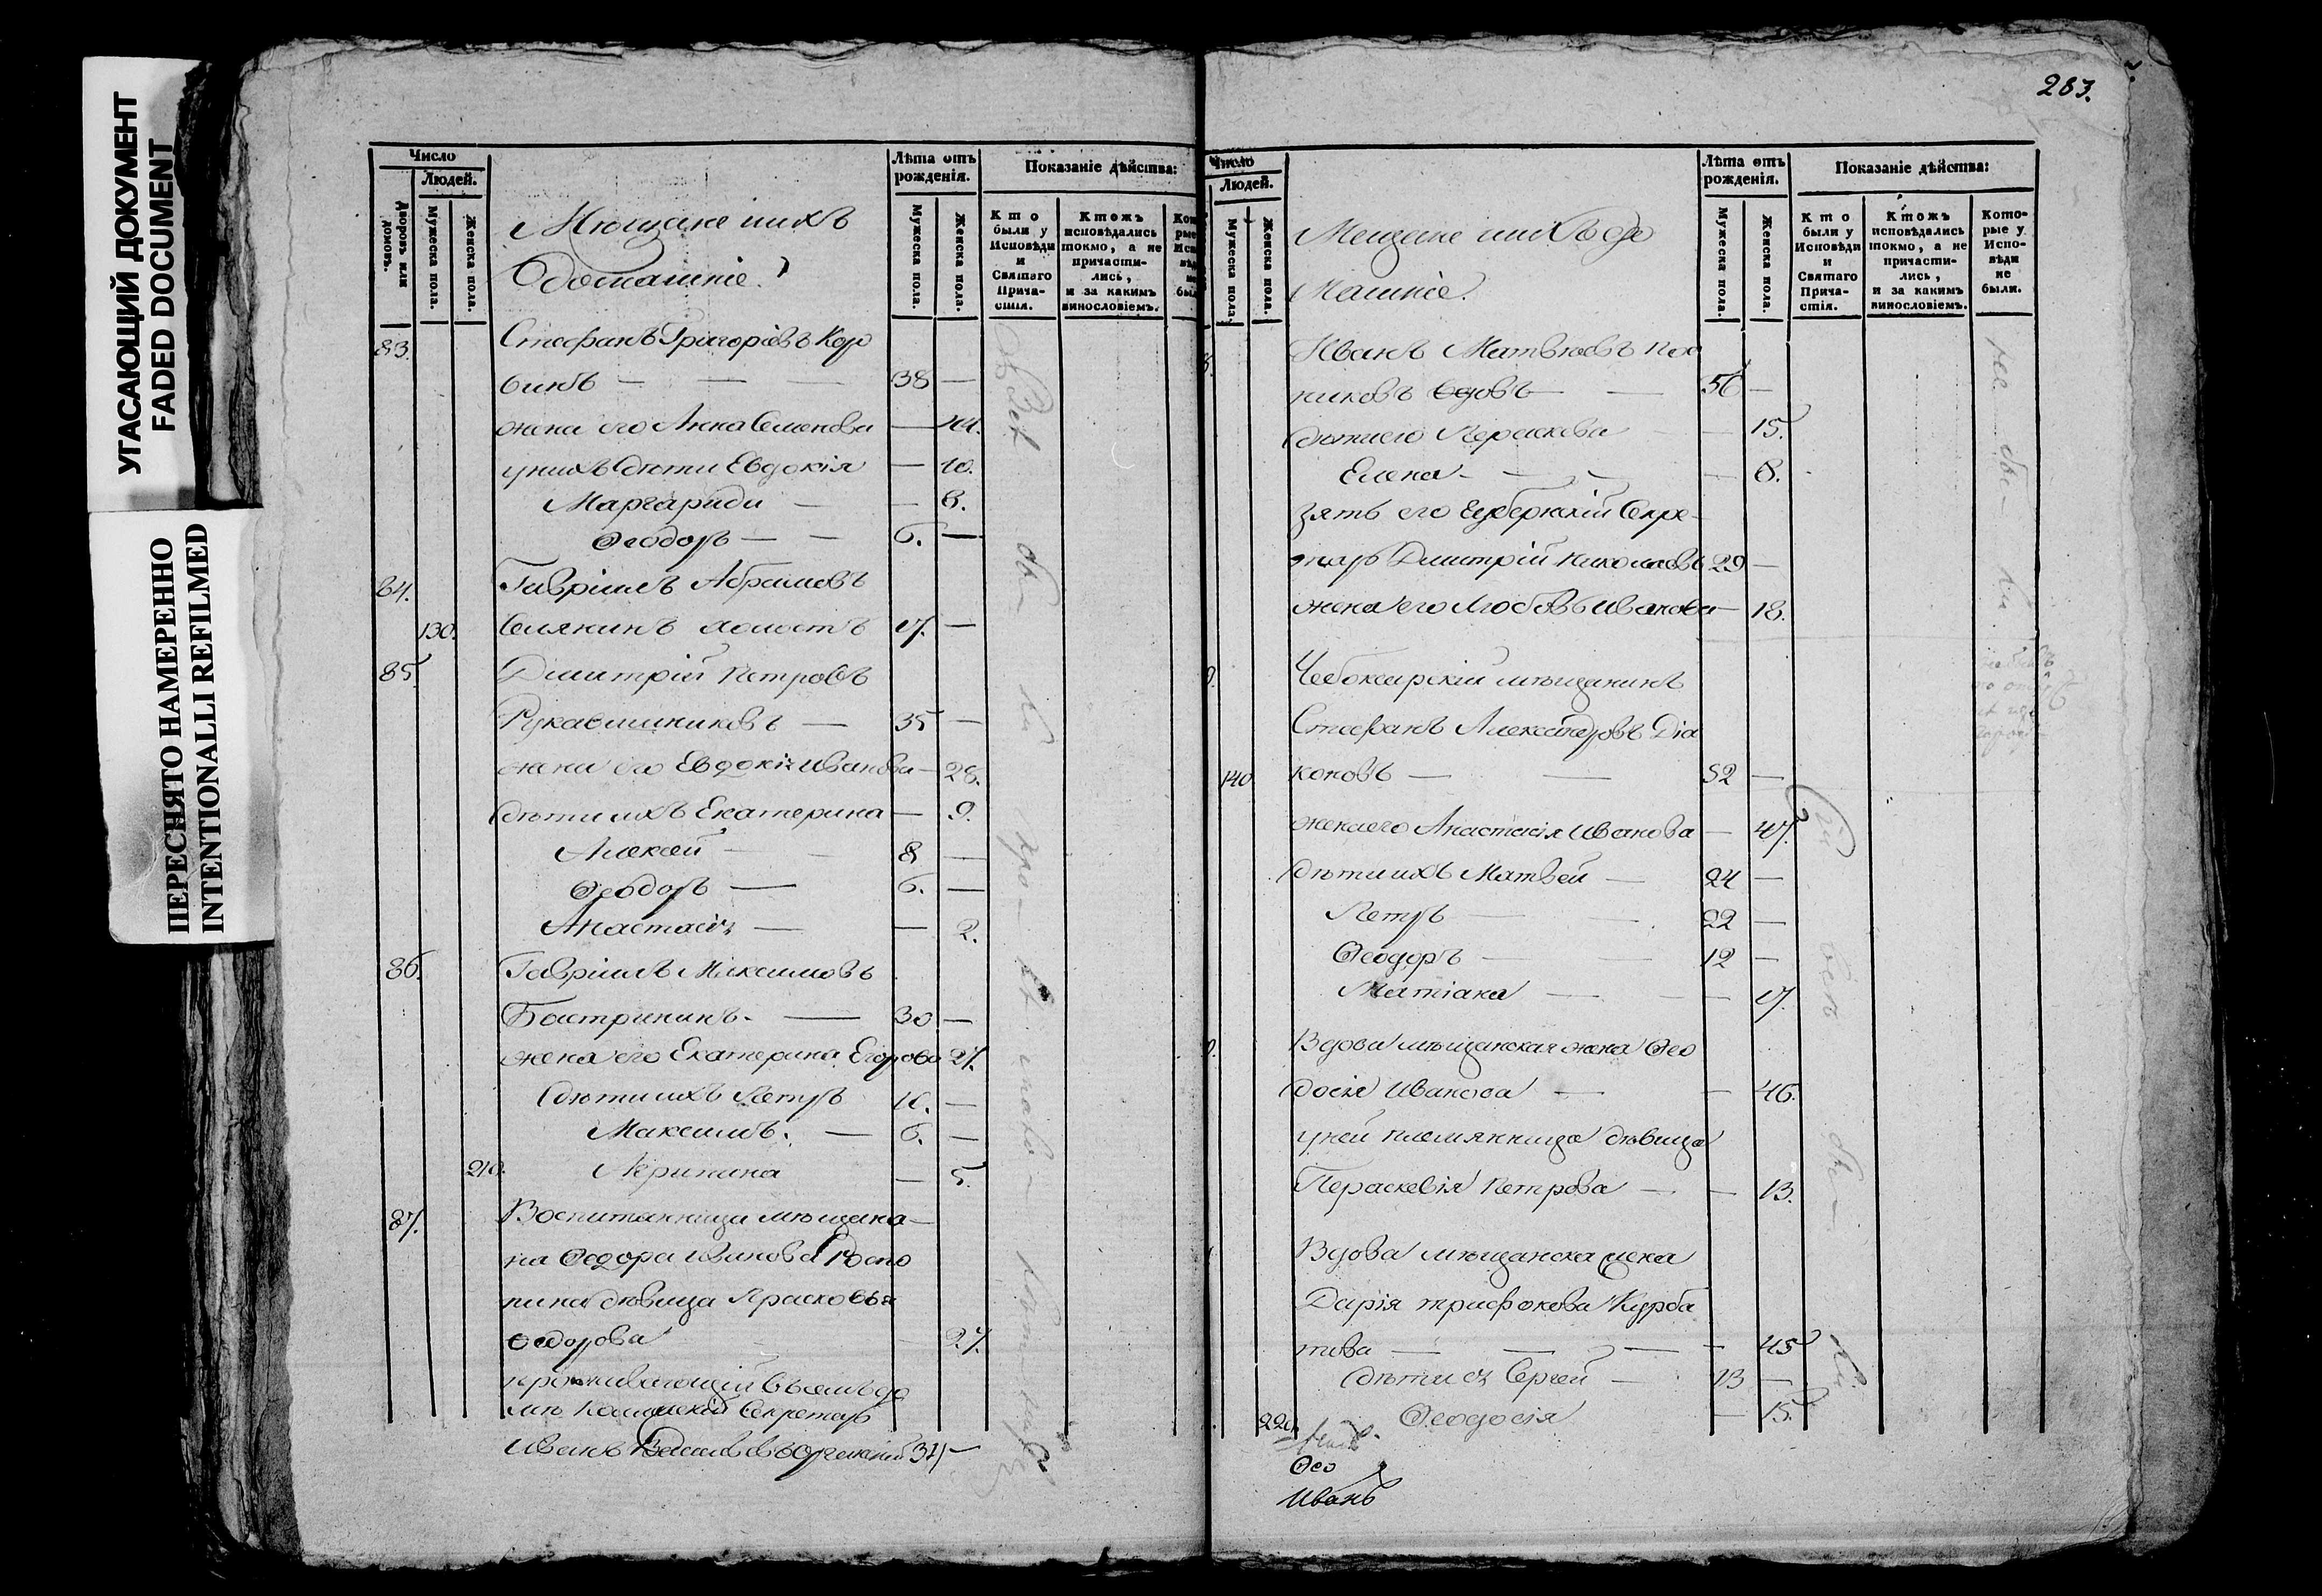 УГАСАЮЩИЙ ДОКУМЕНТ
FADED DOCUMENT
ПЕРЕСНЯТО НАМЕРЕННО
INTENTIONALLI REFILMED
Число
Людей.
Дворовъ или домовъ.
Мужеска пола.
Женска пола.
Мющане ихъ
домашніе.
Лѣта отъ
рожденія.
Мужеска пола.
Женска пола.
Показаніе дѣйства:
Кто
были у
Исповѣди
и
Святаго
Прича-
стія.
Ктожъ
исповѣдались
токмо, а не
причасти-
лись,
и за какимъ
винословіемъ.
83. Стефанъ Григорьевъ Кор
винъ — — — 38 —
жена его Анна Семенова —
у нихъ дѣти Евдокія — 10.
Маргарида — — 8.
Ѳеодоръ — — 6. —
84. Гавріилъ Абрамовъ
130. Селякинъ холостъ 17. —
85. Димитрій Петровъ
Рукавишниковъ — 35 —
жена его Евдокія Иванова — 28.
дѣти ихъ Екатерина — 9.
Алексѣй — 8 —
Ѳеодоръ — 6. —
Анастасія — — 2.
86. Гавріилъ Максимовъ
Бастрикинъ. — 30 —
жена его Екатерина Егорова 27.
дѣти ихъ Петръ 10. —
Максимъ. — 6. —
210. Акрипина — 5.
87. Воспитанница мѣщана-
на Ѳедора Иванова
дѣвица Прасковья
Ѳедорова 27.
проживающій въ ямъ до
мѣ Секретарь
Иванъ 31 —
283.
Число
Людей.
Мужеска пола.
Женска пола.
Мещане ихъ до
машніе.
Лѣта отъ
рожденія.
Мужеска пола.
Женска пола.
Показаніе дѣйства:
Кто
были у
Исповѣди
и
Святаго
Прича-
стія.
Ктожъ
исповѣдались
токмо, а не
причасти-
лись,
и за какимъ
винословіемъ.
Кото-
рые у
Испо-
вѣди
не
были.
Иванъ Матвѣевъ
никовъ вдовъ — — 56 —
дѣти его Пераскева — 15.
Елена — — 8.
зять его Губернскій Секре-
тарь Димитрій Николаевъ 29 —
жена его Любовь Иванова — 18.
Чебоксарскій мѣщанинъ
Стефанъ Александровъ Діа
140 коновъ — — 52 —
жена его Анастасія Иванова — 47.
дѣти ихъ Матвей — 24 —
Петръ — — 22 —
Ѳеодоръ — — 12 —
Татіана — — 17.
Вдова мѣщанская жена Ѳео
досія Иванова — — 46.
у ней племянница дѣвица
Пераскевія Петрова — — 13.
Вдова мѣщанска жена
Дарія Трифонова Курба
това — — — 45
дѣти ея Сергей — 13 —
220 Ѳеодосія — 15.
Ѳео
Иванъ